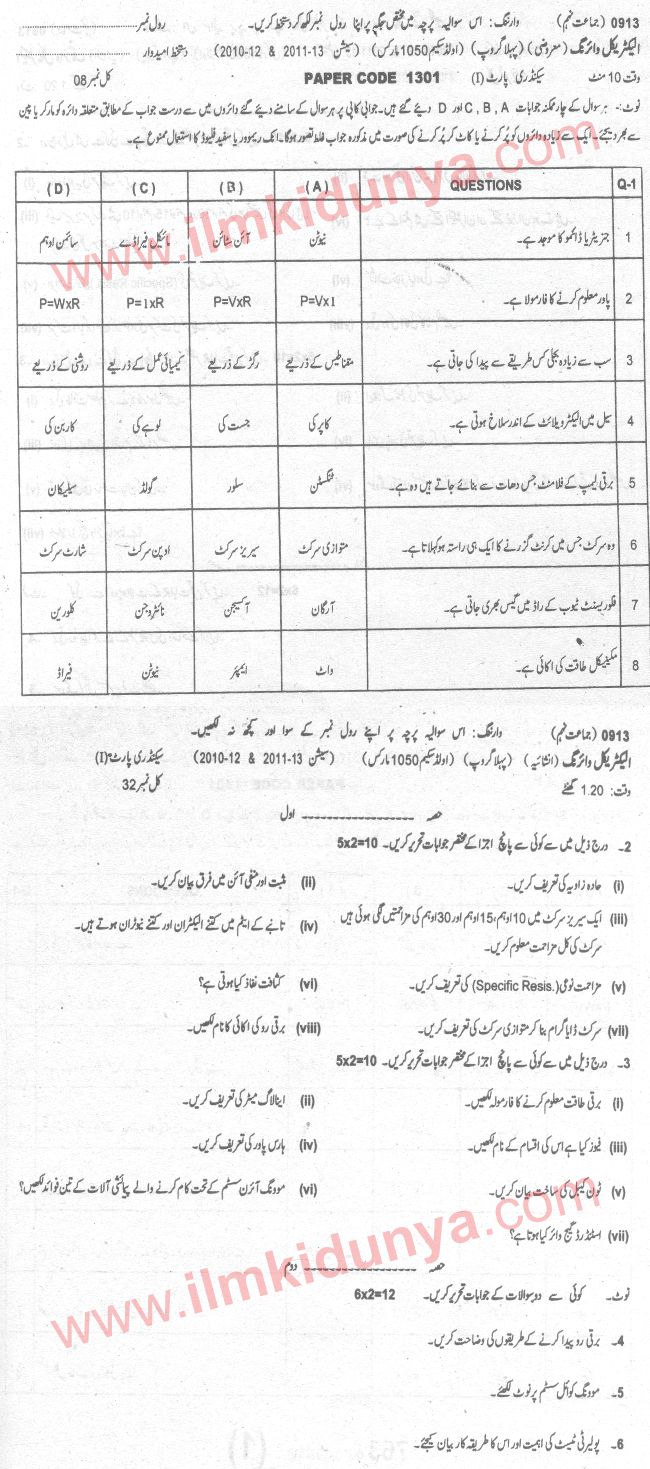 0913 (جماعت نہم) وارننگ: اس سوالیہ پرچہ میں مختص جگہ پر اپنا رول نمبر لکھ کر دستخط کریں۔ رول نمبر
الیکٹریکل وائرنگ (معروضی) (پہلا گروپ) (اولڈ سکیم 1050 مارکس) (سیشن 2010-12 & 2011-13) دستخط امیدوار
وقت 10 منٹ سیکنڈری پارٹ (I) PAPER CODE 1301 کل نمبر 08
نوٹ:- ہر سوال کے چار ممکنہ جوابات C, B, A اور D دیئے گئے ہیں۔ جوابی کاپی پر ہر سوال کے سامنے دیئے گئے دائروں میں سے درست جواب کے مطابق متعلقہ دائرہ کو مارکر یا پین
سے بھر دیجئے۔ ایک سے زیادہ دائروں کو پُر کرنے یا کاٹ کر پُر کرنے کی صورت میں مذکورہ جواب غلط تصور ہوگا۔ انک ریموور یا سفید فلیوڈ کا استعمال ممنوع ہے۔
Q-1 QUESTIONS (A) (B) (C) (D)
1 جنریٹر یا ڈائنمو کا موجد ہے۔ نیوٹن آئن سٹائن مائیکل فیراڈے سائمن اوہم
2 پاور معلوم کرنے کا فارمولا ہے۔ P=Vx1 P=VxR P=1xR P=WxR
3 سب سے زیادہ بجلی کس طریقے سے پیدا کی جاتی ہے۔ مقناطیس کے ذریعے رگڑ کے ذریعے کیمیائی عمل کے ذریعے روشنی کے ذریعے
4 سیل میں الیکٹرولائٹ کے اندر سلاخ ہوتی ہے۔ کاپر کی جست کی لوہے کی کاربن کی
5 برقی لیمپ کے فلامنٹ جس دھات سے بنائے جاتے ہیں وہ ہے۔ ٹنگسٹن سلور گولڈ سیلیکان
6 وہ سرکٹ جس میں کرنٹ گزرنے کا ایک ہی راستہ ہو کہلاتا ہے۔ متوازی سرکٹ سیریز سرکٹ اوپن سرکٹ شارٹ سرکٹ
7 فلوریسنٹ ٹیوب کے راڈ میں گیس بھری جاتی ہے۔ آرگان آکسیجن نائٹروجن کلورین
8 مکینیکل طاقت کی اکائی ہے۔ واٹ ایمپئر نیوٹن فیراڈ
www.ilmkidunya.com
0913 (جماعت نہم) وارننگ: اس سوالیہ پرچہ پر اپنے رول نمبر کے سوا اور کچھ نہ لکھیں۔
الیکٹریکل وائرنگ (انشائیہ) (پہلا گروپ) (اولڈ سکیم 1050 مارکس) (سیشن 2010-12 & 2011-13) سیکنڈری پارٹ (I)
وقت: 1.20 گھنٹے کل نمبر 32
حصہ اول
2۔ درج ذیل میں سے کوئی سے پانچ اجزا کے مختصر جوابات تحریر کریں۔ 5x2=10
(i) حادہ زاویہ کی تعریف کریں۔ (ii) مثبت اور منفی آئن میں فرق بیان کریں۔
(iii) ایک سیریز سرکٹ میں 10 اوہم، 15 اوہم اور 30 اوہم کی مزاحمتیں لگی ہوئی ہیں (iv) تانبے کے ایٹم میں کتنے الیکٹران اور کتنے نیوٹران ہوتے ہیں۔
سرکٹ کی کل مزاحمت معلوم کریں۔
(v) مزاحمت نوعی (Specific Resis.) کی تعریف کریں۔ (vi) کثافت نفاذ کیا ہوتی ہے؟
(vii) سرکٹ ڈایاگرام بنا کر متوازی سرکٹ کی تعریف کریں۔ (viii) برقی رو کی اکائی کا نام لکھیں۔
3۔ درج ذیل میں سے کوئی سے پانچ اجزا کے مختصر جوابات تحریر کریں۔ 5x2=10
(i) برقی طاقت معلوم کرنے کا فارمولہ لکھیں۔ (ii) اینالاگ میٹر کی تعریف کریں۔
(iii) فیوز کیا ہے اس کی اقسام کے نام لکھیں۔ (iv) ہارس پاور کی تعریف کریں۔
(v) ٹون کیبل کی ساخت بیان کریں۔ (vi) موونگ آئرن سسٹم کے تحت کام کرنے والے پیمائشی آلات کے تین فوائد لکھیں؟
(vii) اسٹینڈرڈ گیج وائر کیا ہوتا ہے؟
www.ilmkidunya.com
حصہ دوم
نوٹ۔ کوئی سے دو سوالات کے جوابات تحریر کریں۔ 6x2=12
4۔ برقی رو پیدا کرنے کے طریقوں کی وضاحت کریں۔
5۔ موونگ کوائل سسٹم پر نوٹ لکھئے۔
6۔ پولیرٹی ٹیسٹ کی اہمیت اور اس کا طریقہ کار بیان کیجئے۔